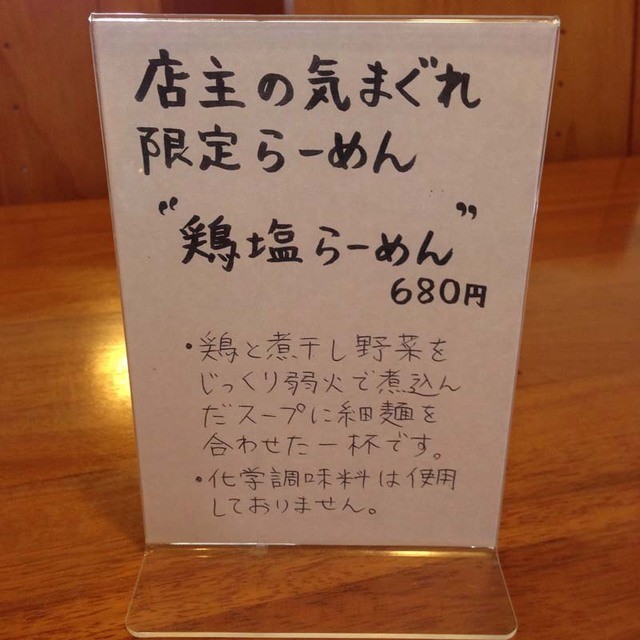 店主の気まぐれ
限定らーめん
“鶏塩らーめん”
680円
・鶏と煮干し野菜を
じっくり弱火で煮込ん
だスープに細麺を
合わせた一杯です。
・化学調味料は使用
しておりません。